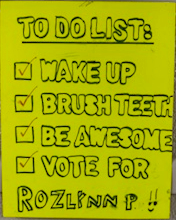 TO DO LIST:
WAKE UP
BRUSH TEETH
BE AWESOME
VOTE FOR
ROZLINN P !!